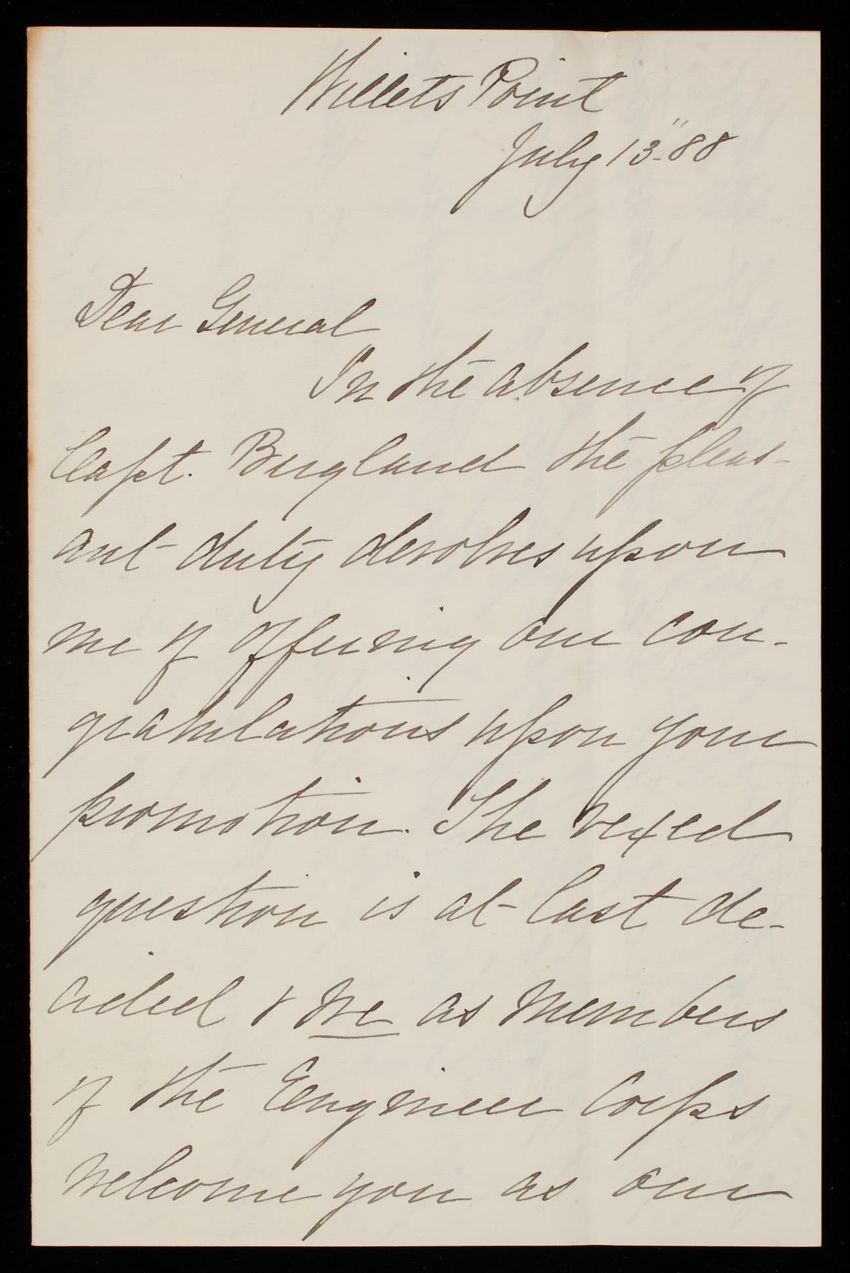 Willets Point
July 13" - 88
Dear General
In the absence of
Capt. Bergland the pleas-
ant duty devolves upon
me of offering our con-
gratulations upon your
promotion. The vexed
question is at last de-
cided & we as members
of the Engineer Corps
welcome you as our